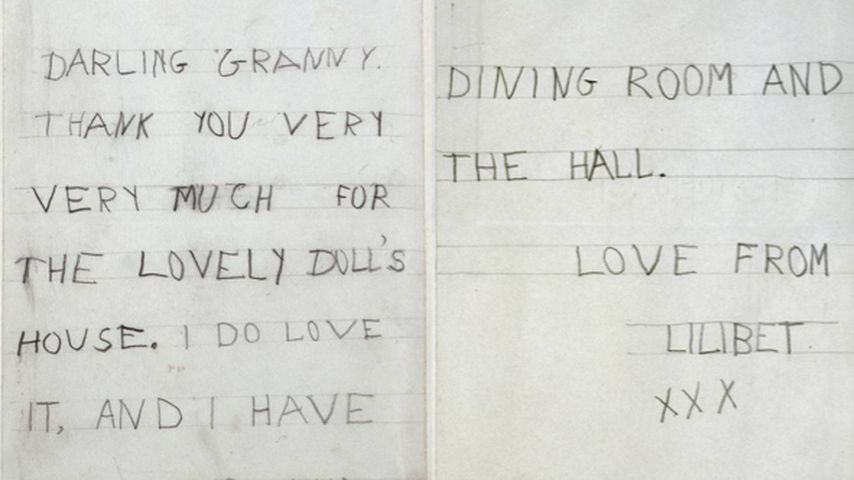 DARLING GRANNY.
THANK YOU VERY
VERY MUCH FOR
THE LOVELY DOLL'S
HOUSE. I DO LOVE
IT, AND I HAVE
DINING ROOM AND
THE HALL.
LOVE FROM
LILIBET.
XXX